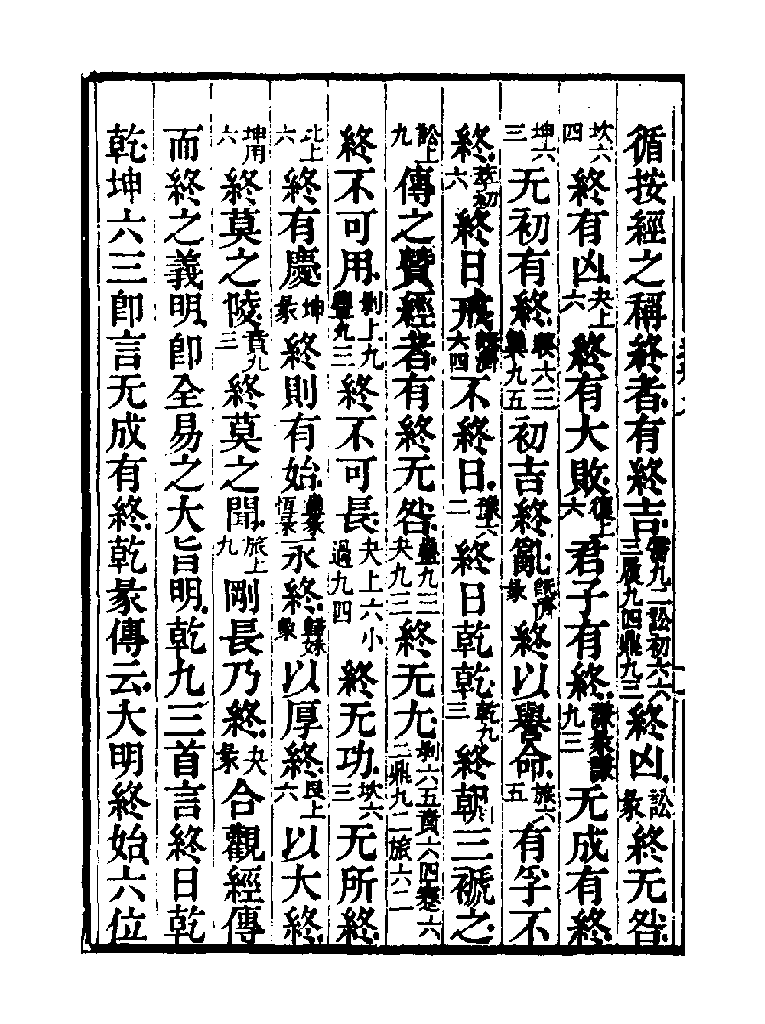 循按經之稱終者有終吉需九二訟初六六三履九四鼎九三終凶訟彖終无咎
坎六四終有凶夬上六終有大敗復上六君子有終謙彖謙九三无成有終
坤六三无初有終睽六三巽九五初吉終亂既濟彖終以譽命旅六五有孚不
終萃初六終日戒既濟六四不終日豫六二終日乾乾乾九三終朝三褫之
訟上九傳之贊經者有終无咎蠱九三夬九三終无尤剝六五賁六四蹇六二鼎九二旅六二
終不可用剝上九豐九三終不可長夬上六小過九四終无功坎六三无所終
比上六終有慶坤彖終則有始蠱彖恆彖永終歸妹象以厚終艮上六以大終
坤用六終莫之陵賁九三終莫之聞旅上九剛長乃終夬彖合觀經傳
而終之義明即全易之大旨明乾九三首言終日乾
乾坤六三即言无成有終乾彖傳云大明終始六位